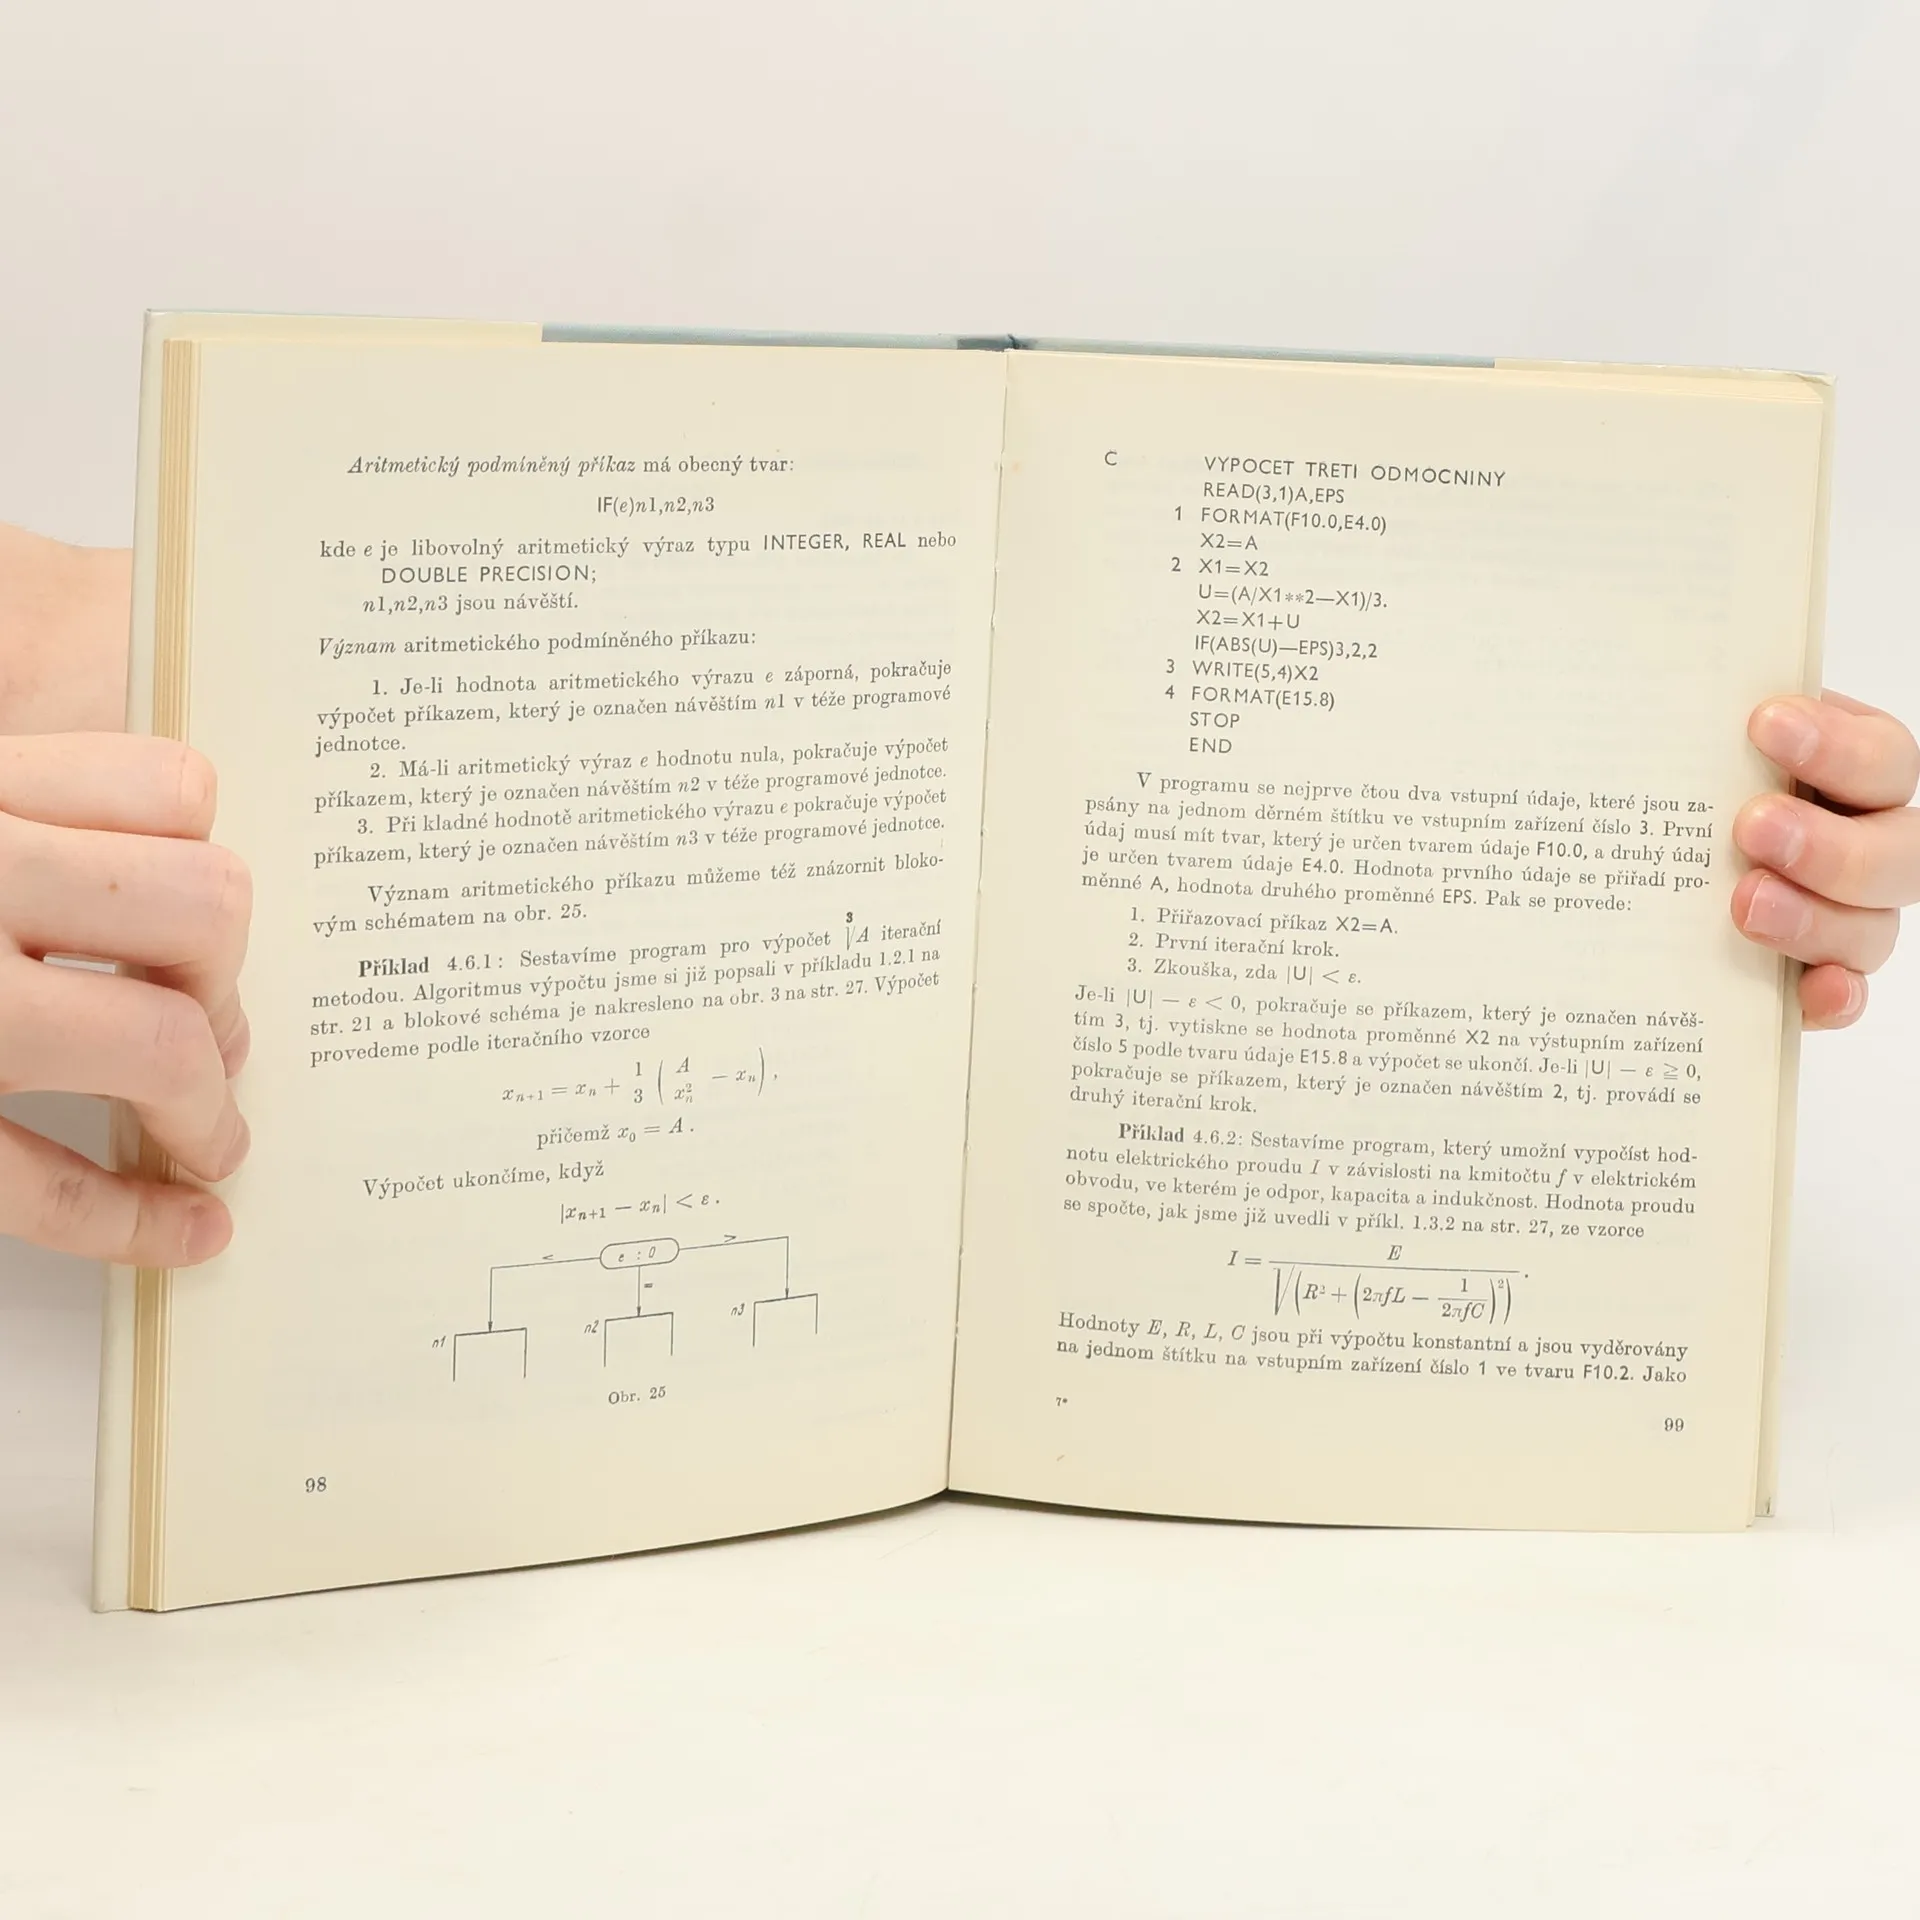 Aritmetický podmíněný příkaz má obecný tvar:
IF(e)n1,n2,n3
kde e je libovolný aritmetický výraz typu INTEGER, REAL nebo
DOUBLE PRECISION;
n1,n2,n3 jsou návěští.
Význam aritmetického podmíněného příkazu:
1. Je-li hodnota aritmetického výrazu e záporná, pokračuje
výpočet příkazem, který je označen návěštím n1 v téže programové
jednotce.
2. Má-li aritmetický výraz e hodnotu nula, pokračuje výpočet
příkazem, který je označen návěštím n2 v téže programové jednotce.
3. Při kladné hodnotě aritmetického výrazu e pokračuje výpočet
příkazem, který je označen návěštím n3 v téže programové jednotce.
Význam aritmetického příkazu můžeme též znázornit bloko-
vým schématem na obr. 25.
Příklad 4.6.1: Sestavíme program pro výpočet ∛A iterační
metodou. Algoritmus výpočtu jsme si již popsali v příkladu 1.2.1 na
str. 21 a blokové schéma je nakresleno na obr. 3 na str. 27. Výpočet
provedeme podle iteračního vzorce
xₙ₊₁ = xₙ + 1/3 (A/xₙ² — xₙ),
přičemž x₀ = A.
Výpočet ukončíme, když
|xₙ₊₁ — xₙ| < ε.
< e : 0 >
=
n1 n2 n3
Obr. 25
98
C VYPOCET TRETI ODMOCNINY
READ(3,1)A,EPS
1 FORMAT(F10.0,E4.0)
X2=A
2 X1=X2
U=(A/X1**2—X1)/3.
X2=X1+U
IF(ABS(U)—EPS)3,2,2
3 WRITE(5,4)X2
4 FORMAT(E15.8)
STOP
END
V programu se nejprve čtou dva vstupní údaje, které jsou za-
psány na jednom děrném štítku ve vstupním zařízení číslo 3. První
údaj musí mít tvar, který je určen tvarem údaje F10.0, a druhý údaj
je určen tvarem údaje E4.0. Hodnota prvního údaje se přiřadí pro-
měnné A, hodnota druhého proměnné EPS. Pak se provede:
1. Přiřazovací příkaz X2=A.
2. První iterační krok.
3. Zkouška, zda |U| < ε.
Je-li |U| — ε < 0, pokračuje se příkazem, který je označen návěš-
tím 3, tj. vytiskne se hodnota proměnné X2 na výstupním zařízení
číslo 5 podle tvaru údaje E15.8 a výpočet se ukončí. Je-li |U| — ε ≧ 0,
pokračuje se příkazem, který je označen návěštím 2, tj. provádí se
druhý iterační krok.
Příklad 4.6.2: Sestavíme program, který umožní vypočíst hod-
notu elektrického proudu I v závislosti na kmitočtu f v elektrickém
obvodu, ve kterém je odpor, kapacita a indukčnost. Hodnota proudu
se spočte, jak jsme již uvedli v příkl. 1.3.2 na str. 27, ze vzorce
I = E / √(R² + (2πfL — 1/2πfC)²).
Hodnoty E, R, L, C jsou při výpočtu konstantní a jsou vyděrovány
na jednom štítku na vstupním zařízení číslo 1 ve tvaru F10.2. Jako
7*
99